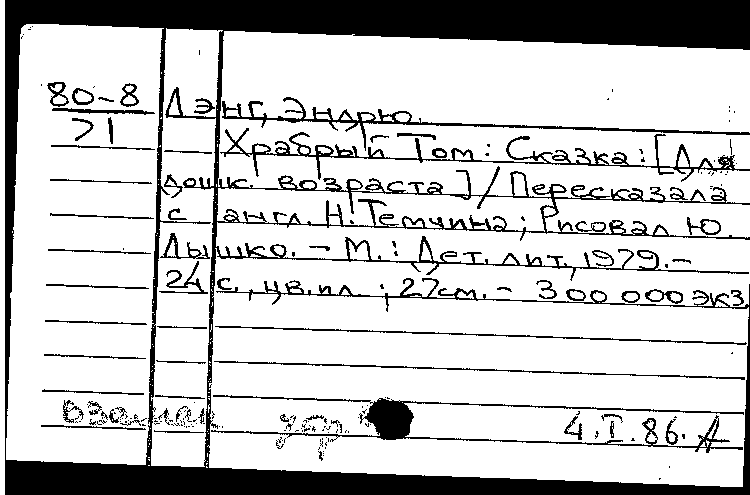 80-8 Лэнг, Эндрю.
71
Храбрый Том: Сказка: [Для
дошк. возраста] / Пересказала
с англ. Н. Темчина; Рисовал Ю.
Лышко. - М.: Дет. лит., 1979. -
24 с., цв. ил.; 27 см. - 300 000 экз.
взамен
4.I.86.